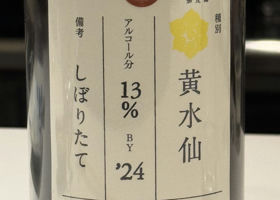 種別
黄水仙
アルコール分
13%
BY
'24
備考
しぼりたて